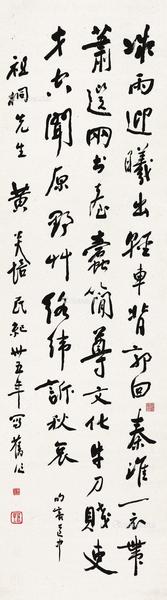 雨迎曦出輕車背郭回秦淮一衣帶
蕭選兩書臺蠹簡尊文化牛刀賤吏
才空聞原野艸絡緯訴秋哀
祖桐先生 黃炎培 民紀卅五年寫舊作